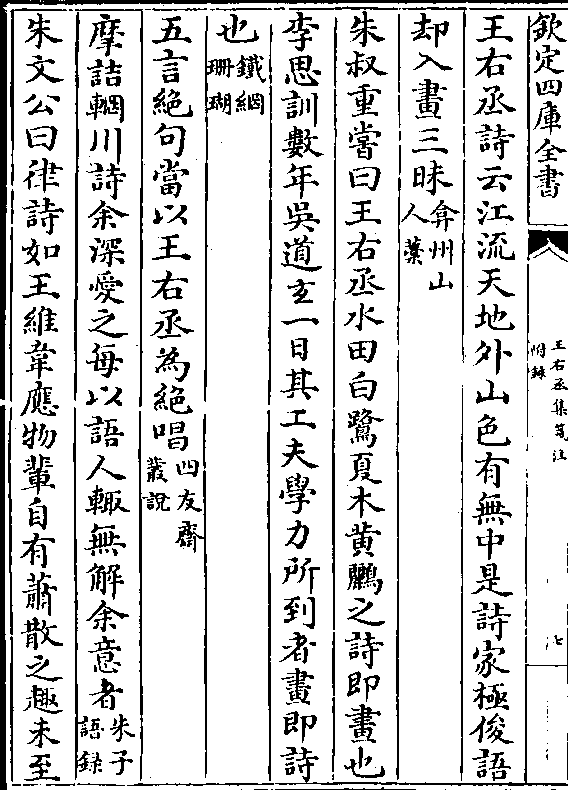 欽定四庫全書
王右丞集箋注
附錄
七
王右丞詩云江流天地外山色有無中是詩家極俊語
却入畫三昧弇州山人藁
朱叔重嘗曰王右丞水田白鷺夏木黄鸝之詩即畫也
李思訓數年吳道玄一日其工夫學力所到者畫即詩
也鐵網珊瑚
五言絶句當以王右丞為絶唱四友齋叢說
摩詰輞川詩余深愛之每以語人輙無解余意者朱子語録
朱文公曰律詩如王維韋應物輩自有蕭散之趣未至